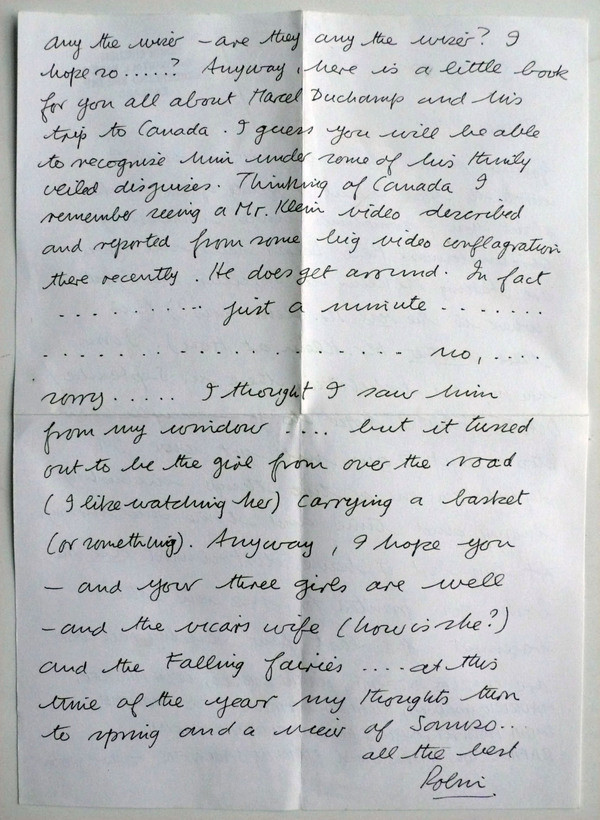 any the wiser – are they any the wiser? I
hope so.....? Anyway, here is a little book
for you all about Marcel Duchamp and his
trip to Canada. I guess you will be able
to recognise him under some of his thinly
veiled disguises. Thinking of Canada I
remember seeing a Mr. Klein video described
and reported from some big video conflagration
there recently. He does get around. In fact
.......... just a minute .......
......................... no, ....
sorry..... I thought I saw him
from my window .... but it turned
out to be the girl from over the road
(I like watching her) carrying a basket
(or something). Anyway, I hope you
– and your three girls are well
– and the vicars wife (how is she?)
and the Falling fairies ....at this
time of the year my thoughts turn
to spring and a view of ...
all the best